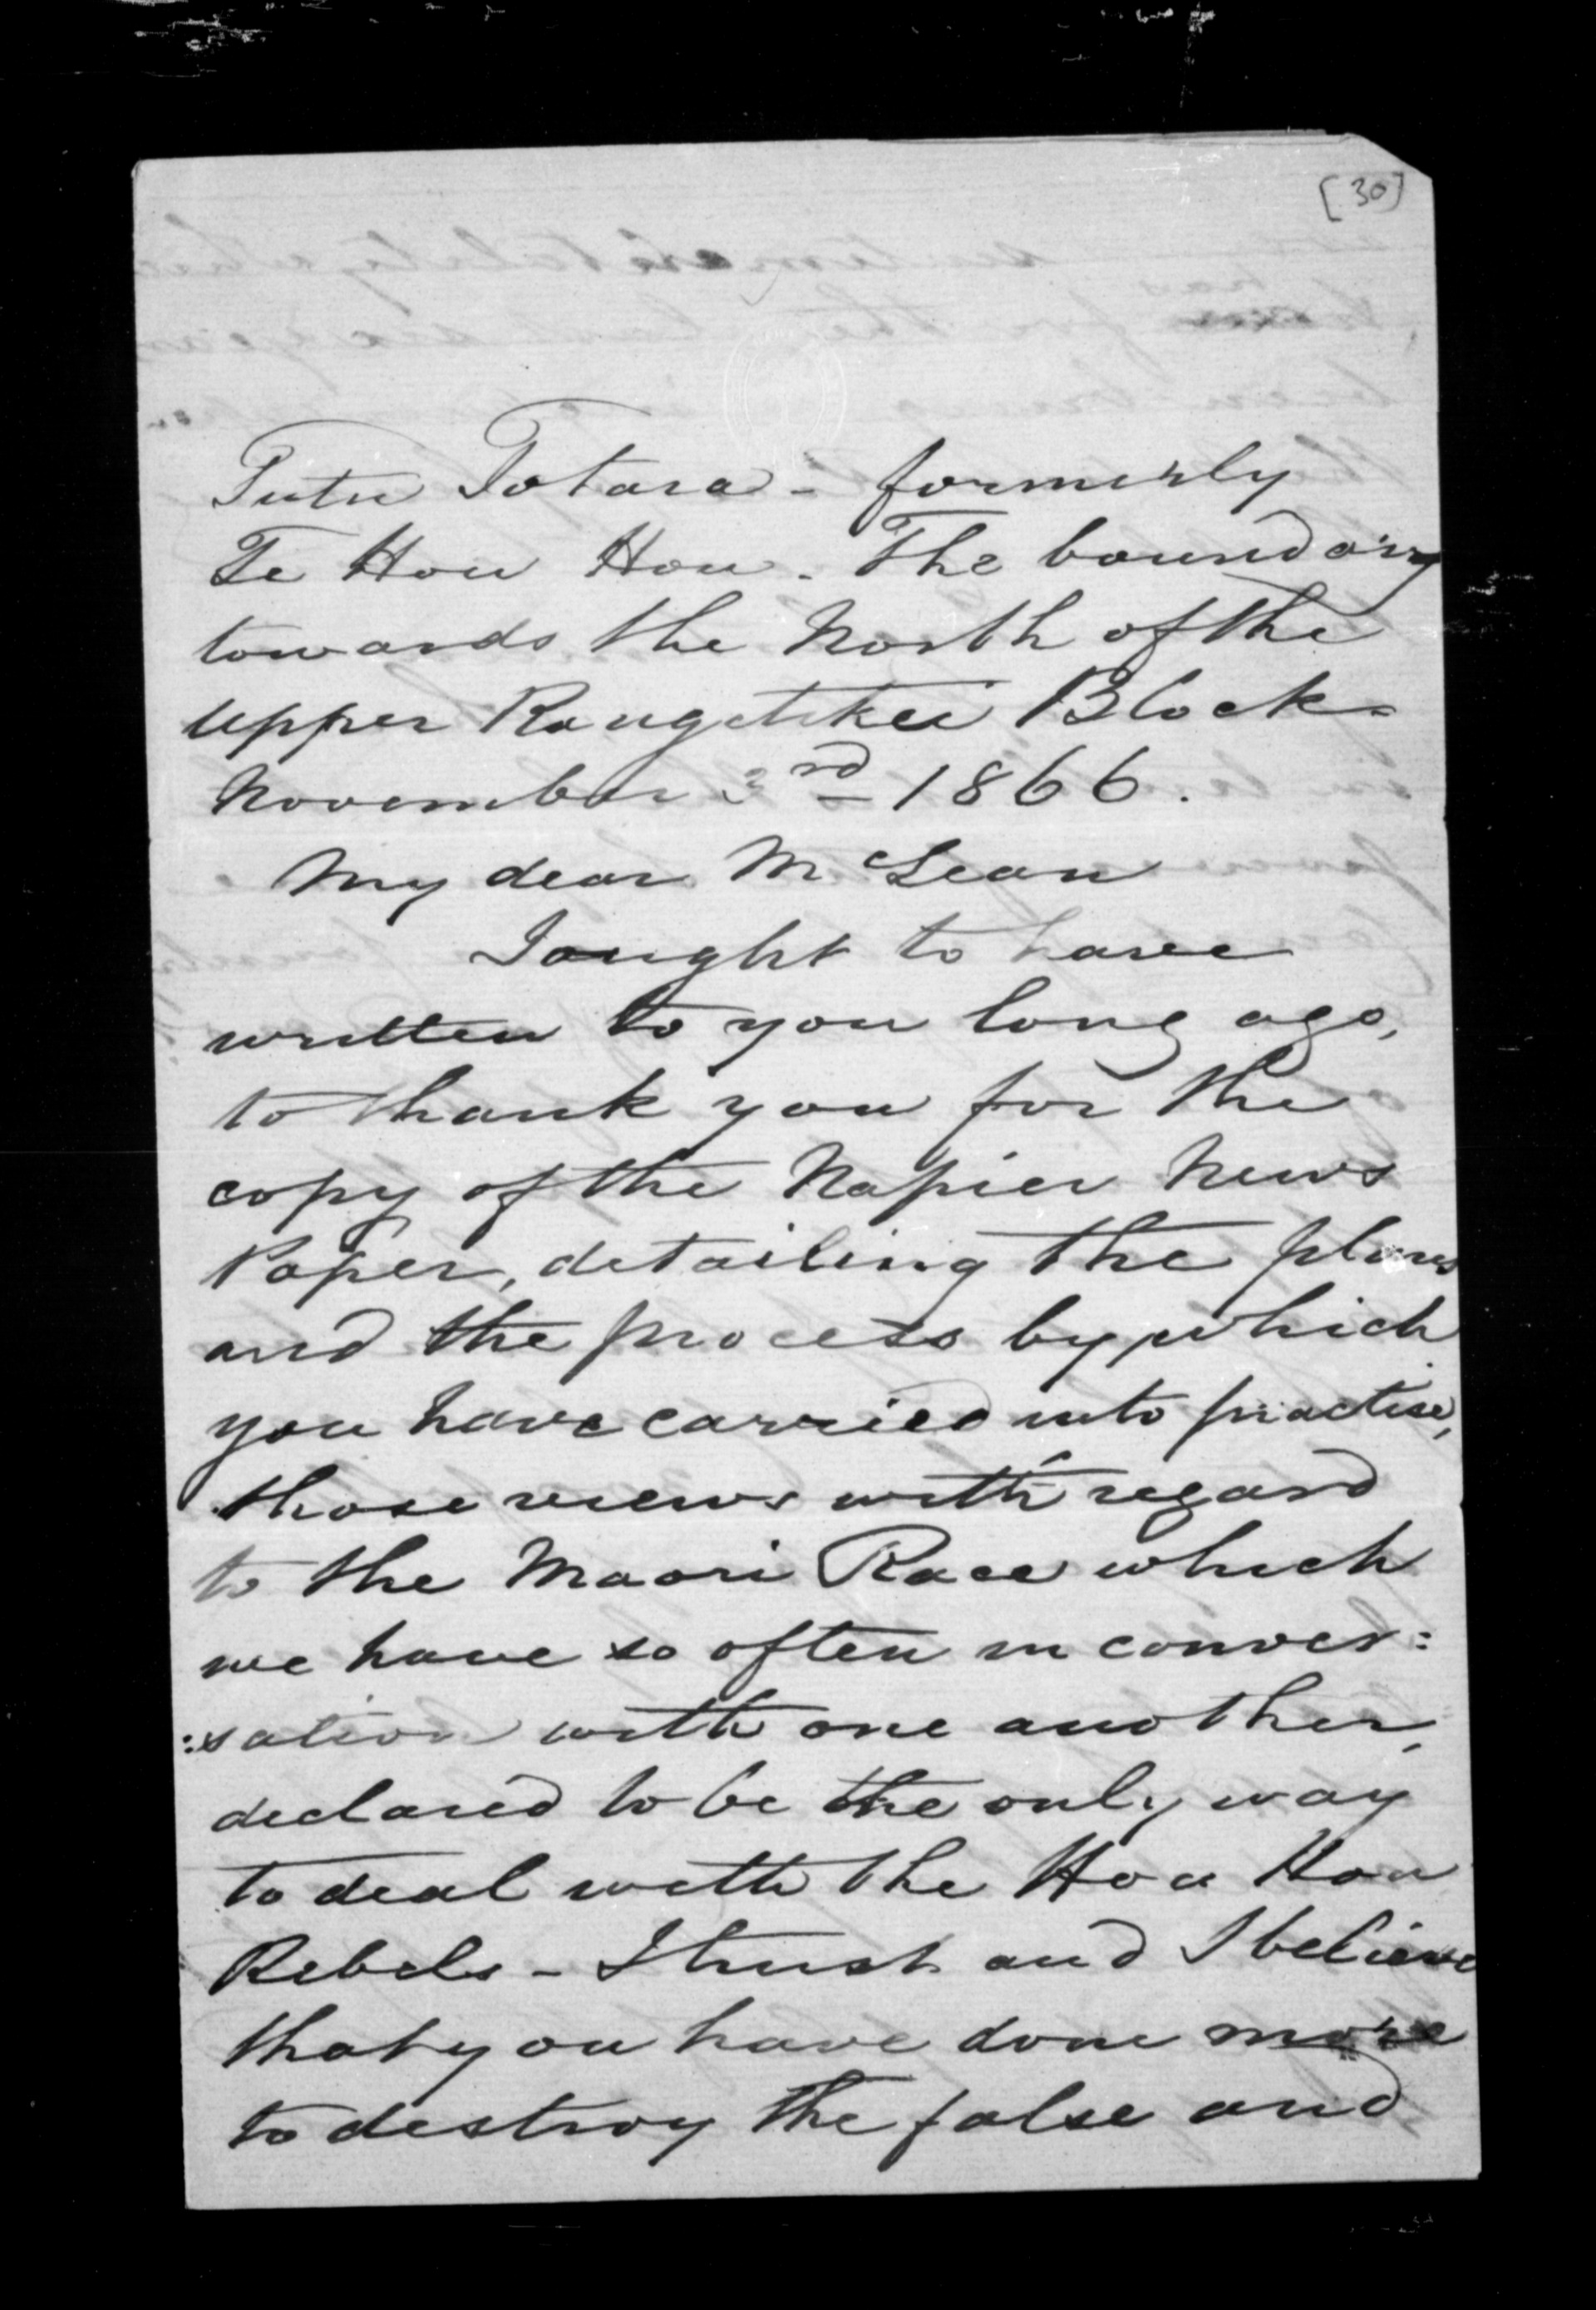 [30]
Tutu Totara - formerly
Te Hou Hou. The boundary
towards the North of the
upper Rangitikei Block -
November 3rd 1866.
My dear McLean
I ought to have
written to you long ago,
to thank you for the
copy of the Napier News
Paper, detailing the plans
and the process by which
you have carried into practise,
those views with regard
to the Maori Race which
we have so often in conver:
:sation with one another,
declared to be the only way
to deal with the Hou Hou
Rebels - I trust and I believe
that you have done more
to destroy the false and